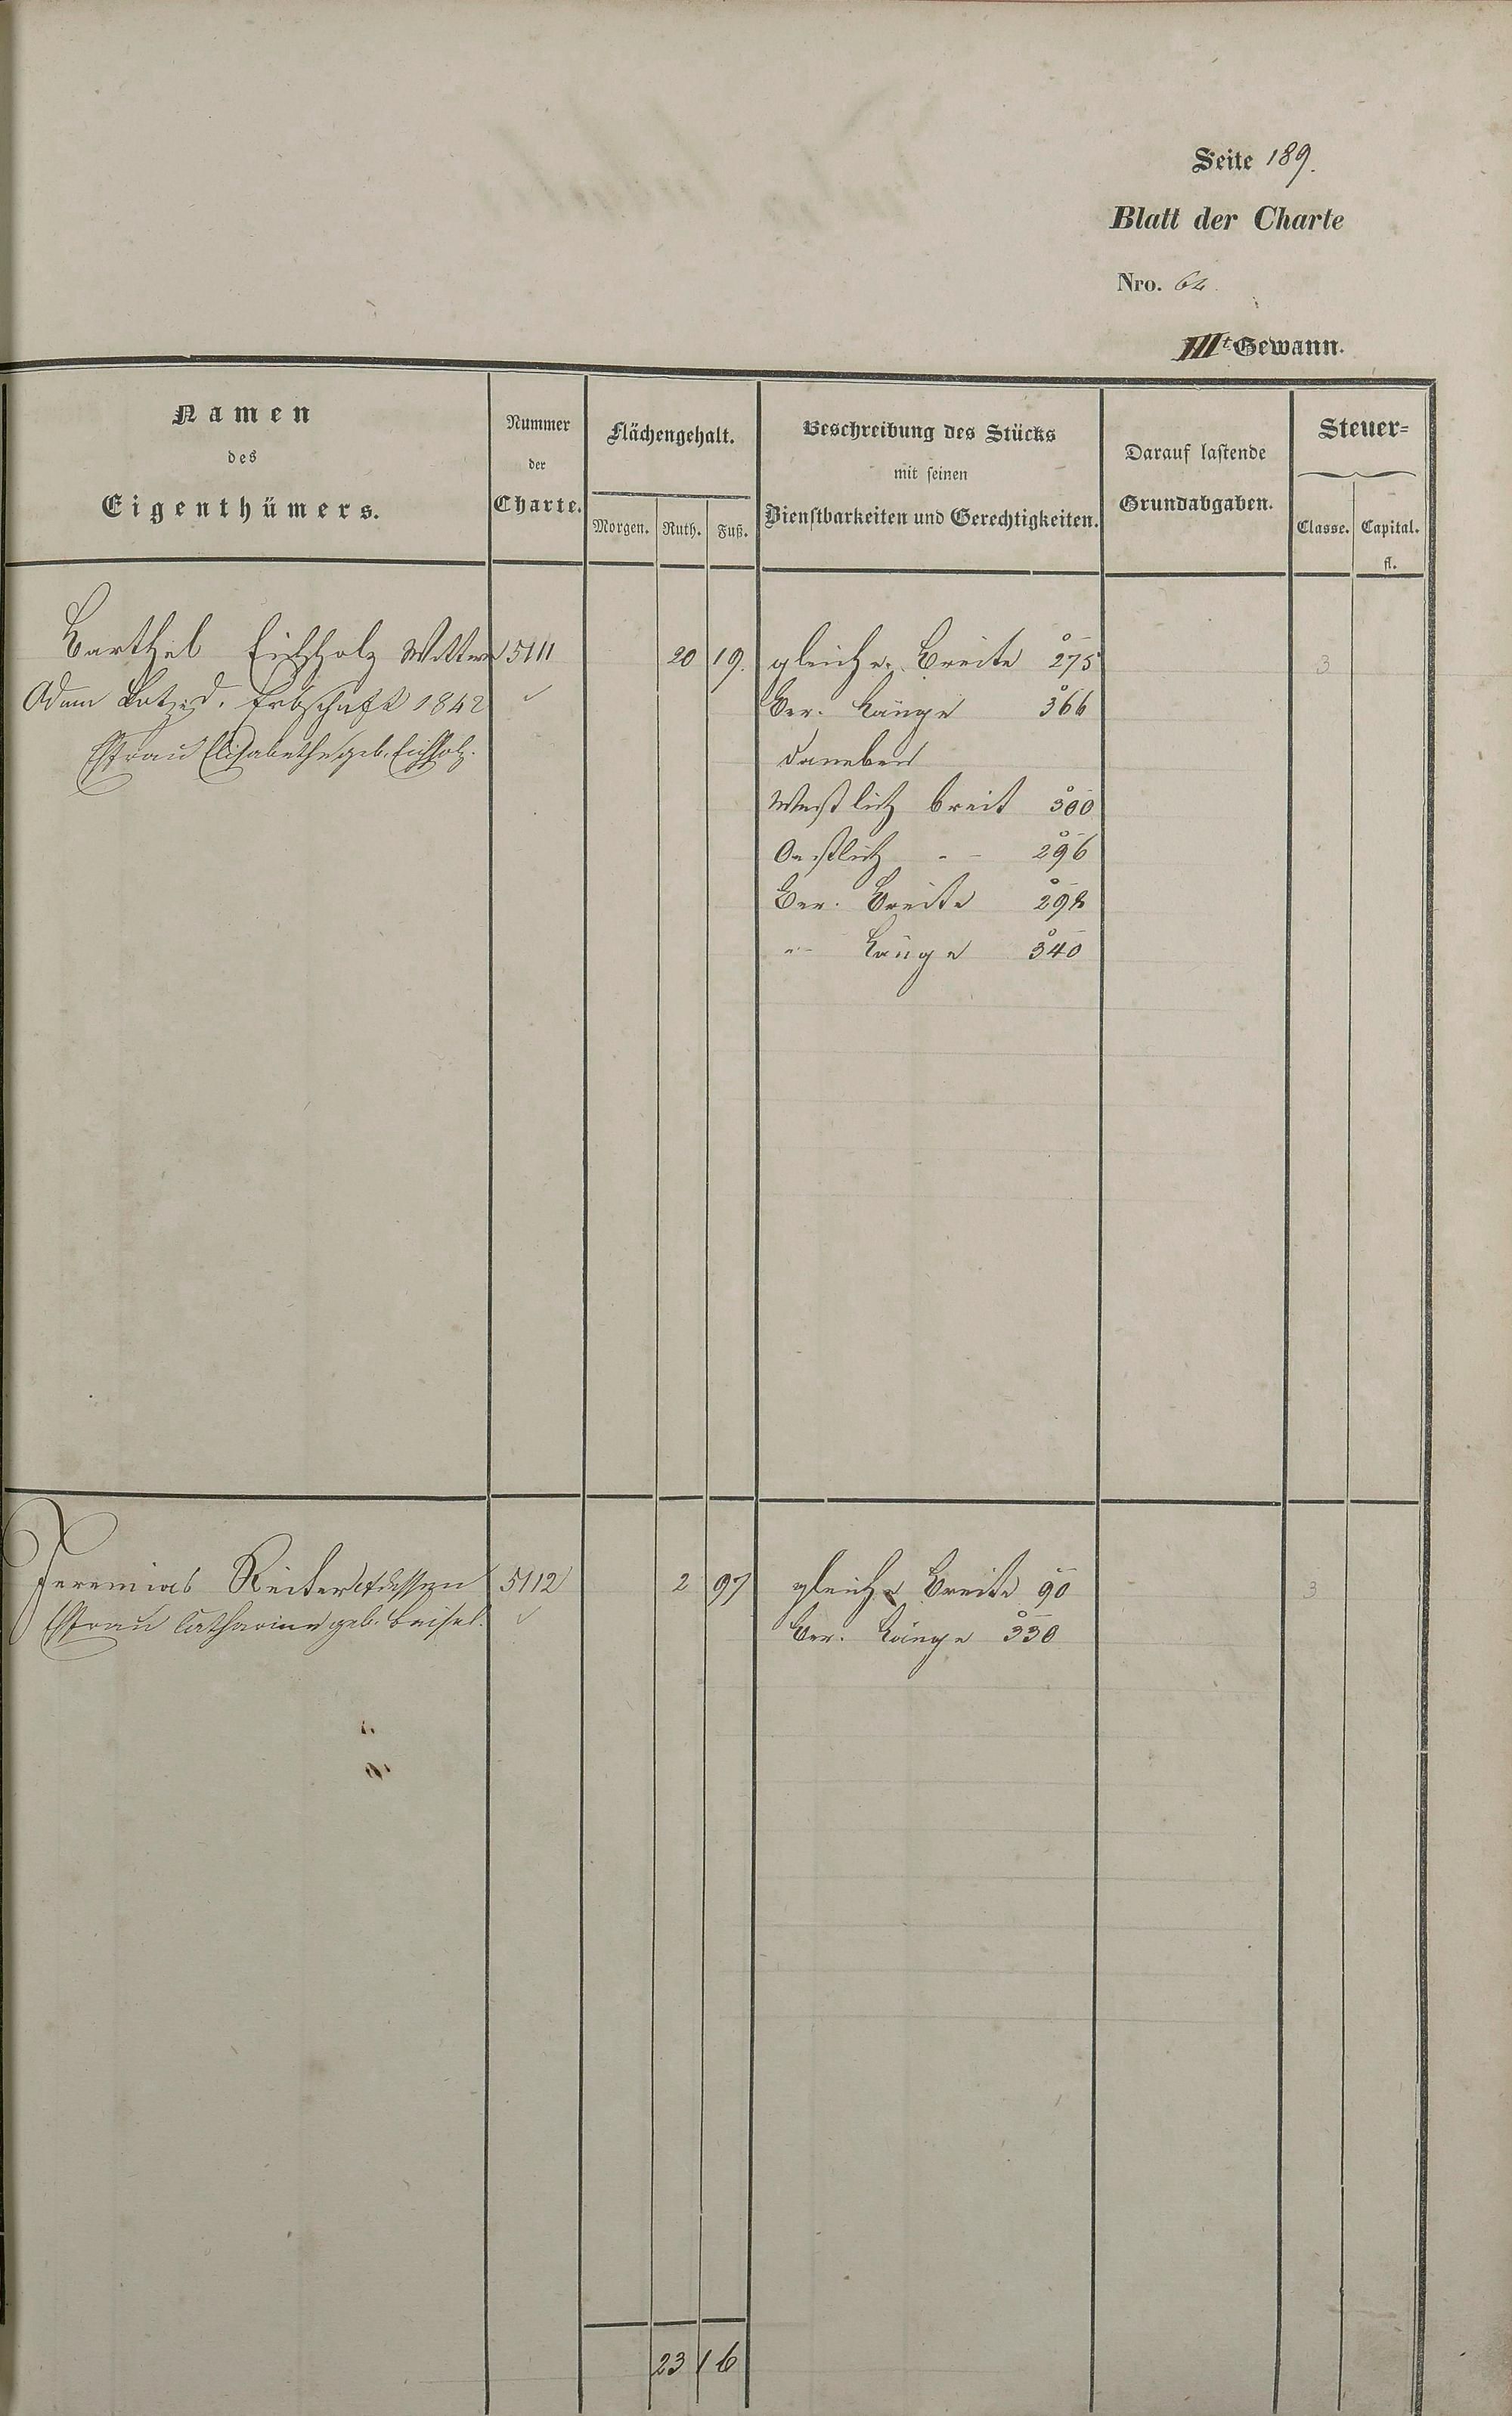 Seite 189.
Blatt der Charte
Nro. 64
IIIt Gewann.
Namen
des
Eigenthümers.
Nummer
der
Charte.
Flächengehalt.
Morgen. Ruth. Fuß.
Beschreibung des Stücks
mit seinen
Dienstbarkeiten und Gerechtigkeiten.
Darauf lastende
Grundabgaben.
Steuer=
Classe. Capital.
fl.
Barthel Eichholz Wittwe 5111 20 19. gleiche Breite 275 3
Adam d. Erbschaft 1842 Ber. Länge 366
Ehfrau Elisabetha geb. Eichholz. daneben
Westlich breit 300
Oestlich - - 296
Ber. Breite 298
" Länge 340
Jeremias Reiter dessen 5112 2 97 gleiche Breite 90 3
Ehfrau Catharina geb. Beisel. Ber. Länge 330
23 16